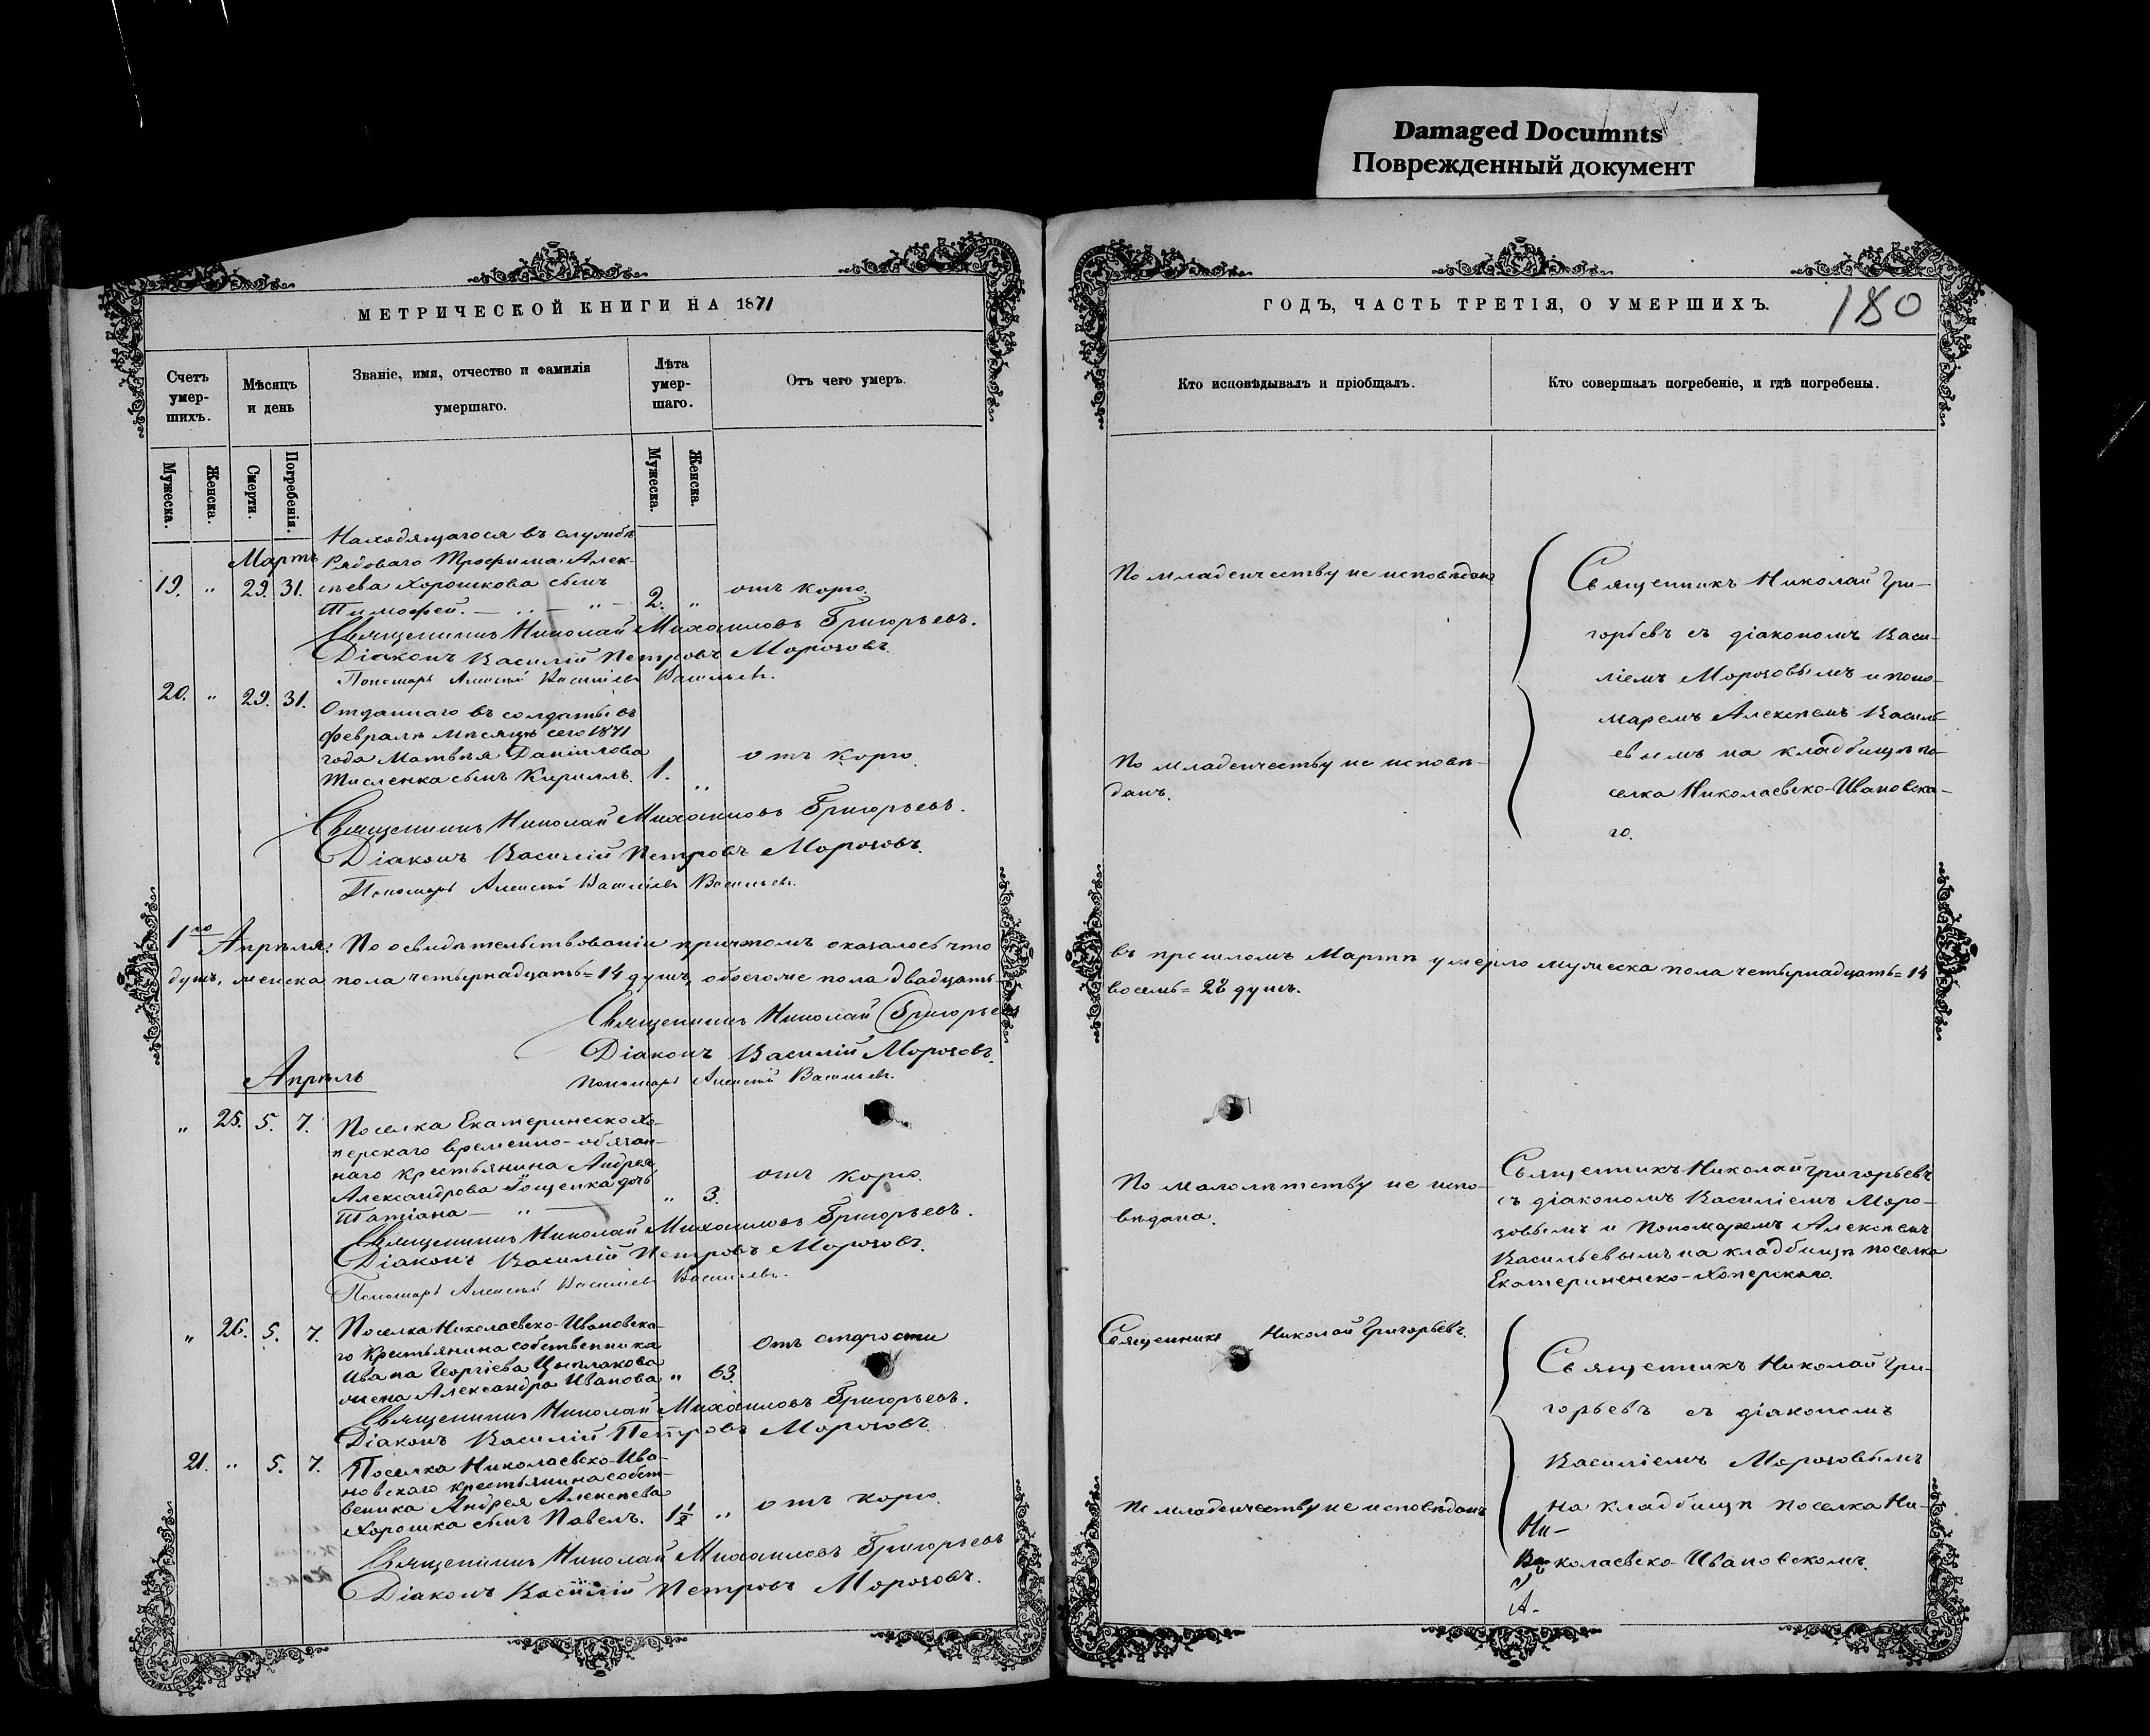 Damaged Documnts
Поврежденный документ
МЕТРИЧЕСКОЙ КНИГИ НА 1871
Счетъ умер-шихъ.
Мѣсяцъ и день
Званіе, имя, отчество и фамилія
умершаго.
Лѣта умер-шаго.
Отъ чего умеръ.
Мужеска.
Женска.
Смерти.
Погребенія.
Мужеска.
Женска.
Находящагося въ службѣ
Мартъ Рядоваго Трофима Алек-
19. " 29. 31. сѣева Хорошкова сынъ
Тимофей. 2. " отъ корю.
Священникъ Николай Михаиловъ Григорьевъ.
Діаконъ Василій Петровъ Морозовъ.
Пономарь Алексѣй Васильевъ Васильевъ.
20. " 29. 31.
Отданнаго въ солдаты въ
февралѣ мѣсяцѣ сего 1871
года Матвѣя Даніилова
сынъ Кириллъ. 1. " отъ корю.
Священникъ Николай Михаиловъ Григорьевъ.
Діаконъ Василій Петровъ Морозовъ.
Пономарь Алексѣй Васильевъ Васильевъ.
1го Апрѣля: По освидѣтельствованіи причтомъ оказалось что
душъ, женска пола четырнадцать = 14 душъ, обоегоже пола двадцать
Священникъ Николай Григорьевъ
Діаконъ Василій Морозовъ.
Пономарь Алексѣй Васильевъ.
Апрѣль
" 25. 5. 7. Поселка Екатеринеско-Хо-
перскаго временно-обязан-
наго крестьянина Андрея
Александрова дочь
Татіана " 3. отъ корю.
Священникъ Николай Михаиловъ Григорьевъ.
Діаконъ Василій Петровъ Морозовъ.
Пономарь Алексѣй Васильевъ Васильевъ.
" 26. 5. 7. Поселка Николаевско-Ивановска-
го крестьянина собственника
Ивана Георгіева Цыплакова
жена Александра Иванова " 63. Отъ старости
Священникъ Николай Михаиловъ Григорьевъ.
Діаконъ Василій Петровъ Морозовъ.
21. " 5. 7. Поселка Николаевско-Ива-
новскаго крестьянина собст-
веника Андрея Алексѣева
Хорошка сынъ Павелъ. 1½ " отъ корю.
Священникъ Николай Михаиловъ Григорьевъ
Діаконъ Василій Петровъ Морозовъ.
ГОДЪ, ЧАСТЬ ТРЕТІЯ, О УМЕРШИХЪ.
180
Кто исповѣдывалъ и пріобщалъ.
Кто совершалъ погребеніе, и гдѣ погребены.
По младенчеству не исповѣданъ
Священникъ Николай Гри-
горьевъ съ діакономъ Васи-
ліемъ Морозовымъ и поно-
маремъ Алексѣемъ Василь-
евымъ на кладбищѣ по-
селка Николаевско-Ивановска-
го.
По младенчеству не исповѣ-
данъ.
въ прошломъ Мартѣ умерло мужеска пола четырнадцать = 14
восемь = 28 душъ.
По малолѣтству не испо-
вѣдана.
Священникъ Николай Григорьевъ
съ діакономъ Василіемъ Моро-
зовымъ и Пономаремъ Алексѣемъ
Васильевымъ на кладбищѣ поселка
Екатериненско-Хоперскаго.
Священникъ Николай Григорьевъ.
Священникъ Николай Гри-
горьевъ съ діакономъ
Василіемъ Морозовымъ
на кладбищѣ поселка Ни-
Ни-
колаевско-Ивановскомъ.
А-
По младенчеству не исповѣданъ